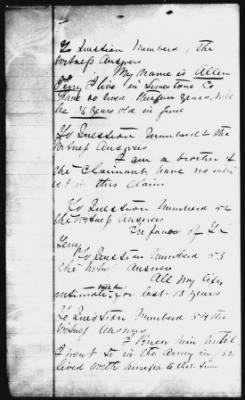 To Question Numberd 1 the
Witness Answers
My Name is Allen
Terry I live in Limestone Co
have so lived Years will
be 18 years old in June
To Question Numberd 2 the
Witness Answers
I am a brother to
the Claimant have no inter
est in this claim
To Question Numberd 52
the Witness Answers
In favor of
Terry
To Question Numberd 53
the Witn Answers
All My life
intimately for last 13 years
To Question Numberd 54 the
Witness Answers
I knew him until
I went in the Army in 62
lived with to that time